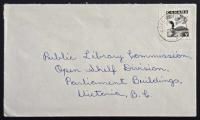 CANADA
Public Library Commission,
Open Shelf Division,
Parliament Buildings,
Victoria, B.C.